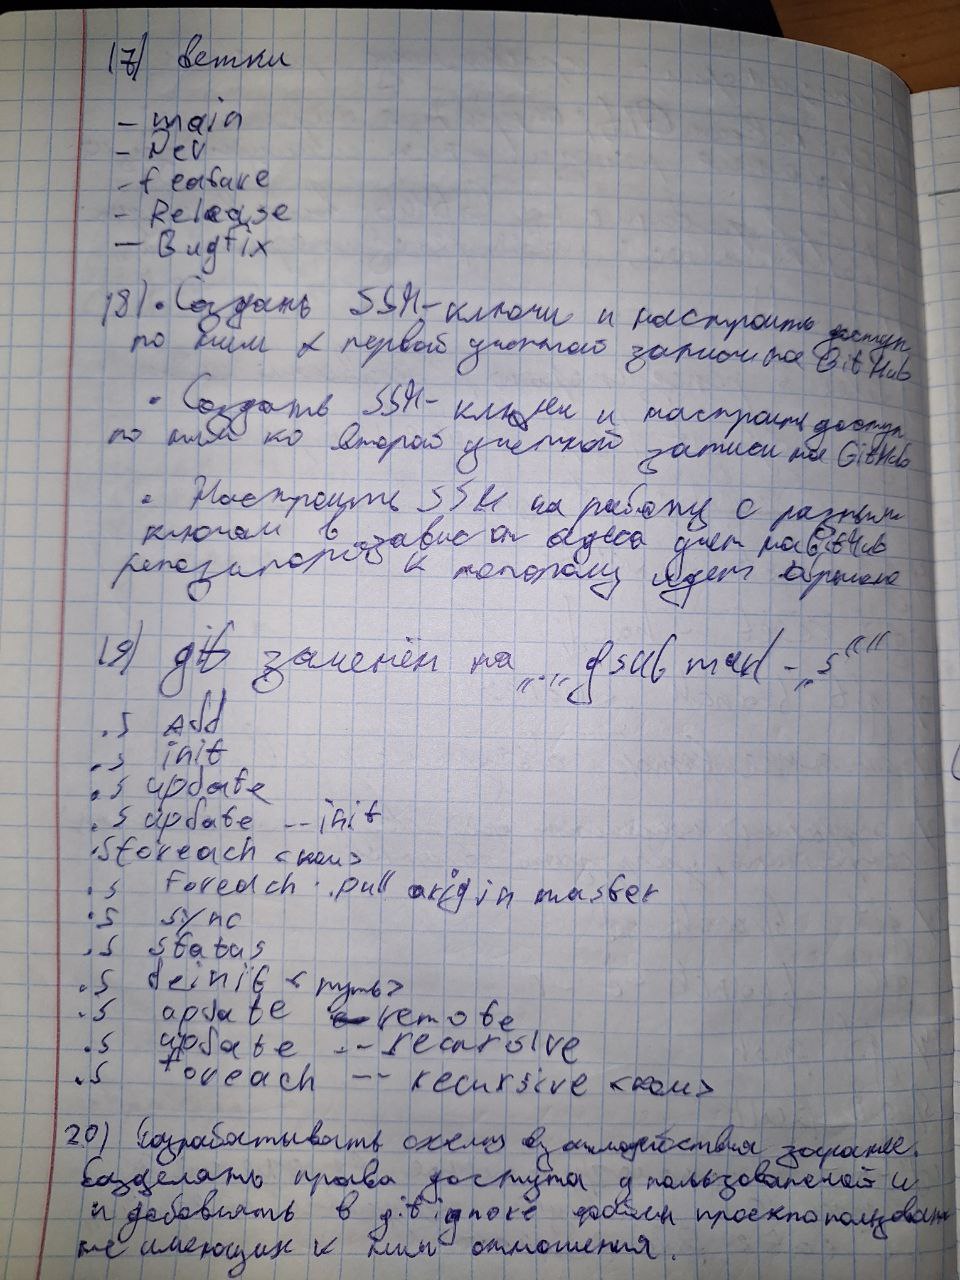 17) ветки
- main
- Dev
- feature
- Release
- Bugfix
18) • Создать SSH-ключи и настроить доступ
по ним к первой учетной записи на GitHub
• Создать SSH-ключи и настроить доступ
по ним ко второй учётной записи на GitHub
• Настроить SSH на работу с разным
ключам в завис от адреса на GitHub
репозитороз к которому идет
19) git заменён на
.s Add
.s init
.s update
.s update --init
.s foreach <ком>
.s foreach pull origin master
.s sync
.s status
.s deinit <путь>
.s update remote
.s update -- recursive
.s foreach -- recursive <ком>
20) Разрабатывать схему взаимодействия заранее.
Разделять права доступа у пользователей и
и добавлять в gitignore файлы
не имеющих к ним отношения.